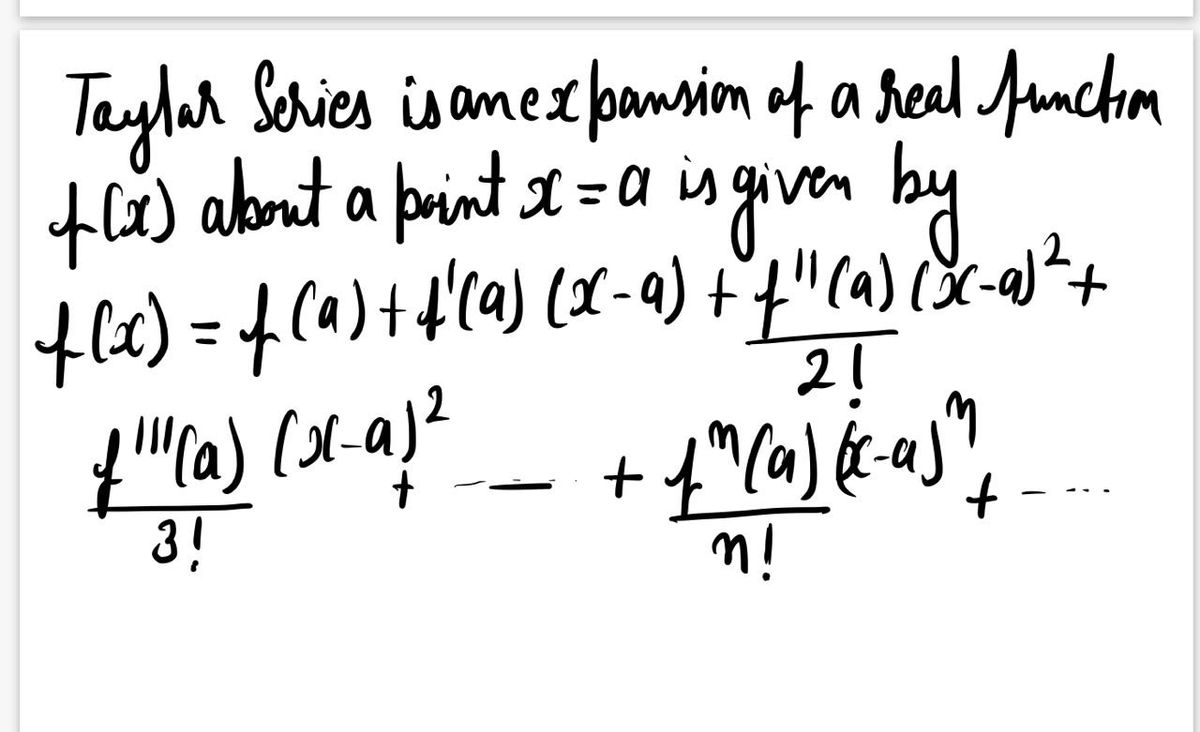 Taylar Series is an expansion of a real function
f(x) about a point x = a is given by
f(x) = f(a) + f'(a) (x-a) + f''(a)/2! (x-a)² +
f'''(a)/3! (x-a)² + — — + fⁿ(a)/n! (x-a)ⁿ + - ----